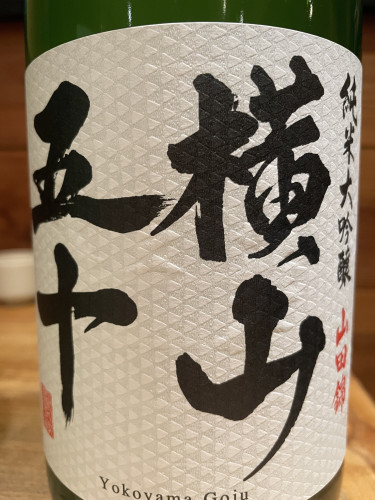 純米大吟醸 山田錦
横山
五十
Yokoyama Goju